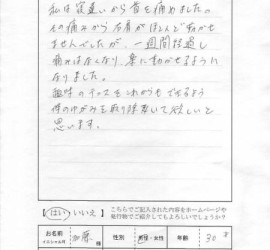 私は寝違いから首を痛めました。
その痛みから右肩がほとんど動かせ
ませんでしたが、一週間程通し
痛みはなくなり、楽に動かせるように
なりました。
趣味のテニスをこれからもできるよう
体のゆがみを取り除いて欲しいと
思います。
【はい いいえ】
こちらでご記入された内容をホームページや
発行物でご紹介してもよろしいでしょうか?
お名前 イニシャル可 加藤 様 性別 男性・女性 年齢 30 才